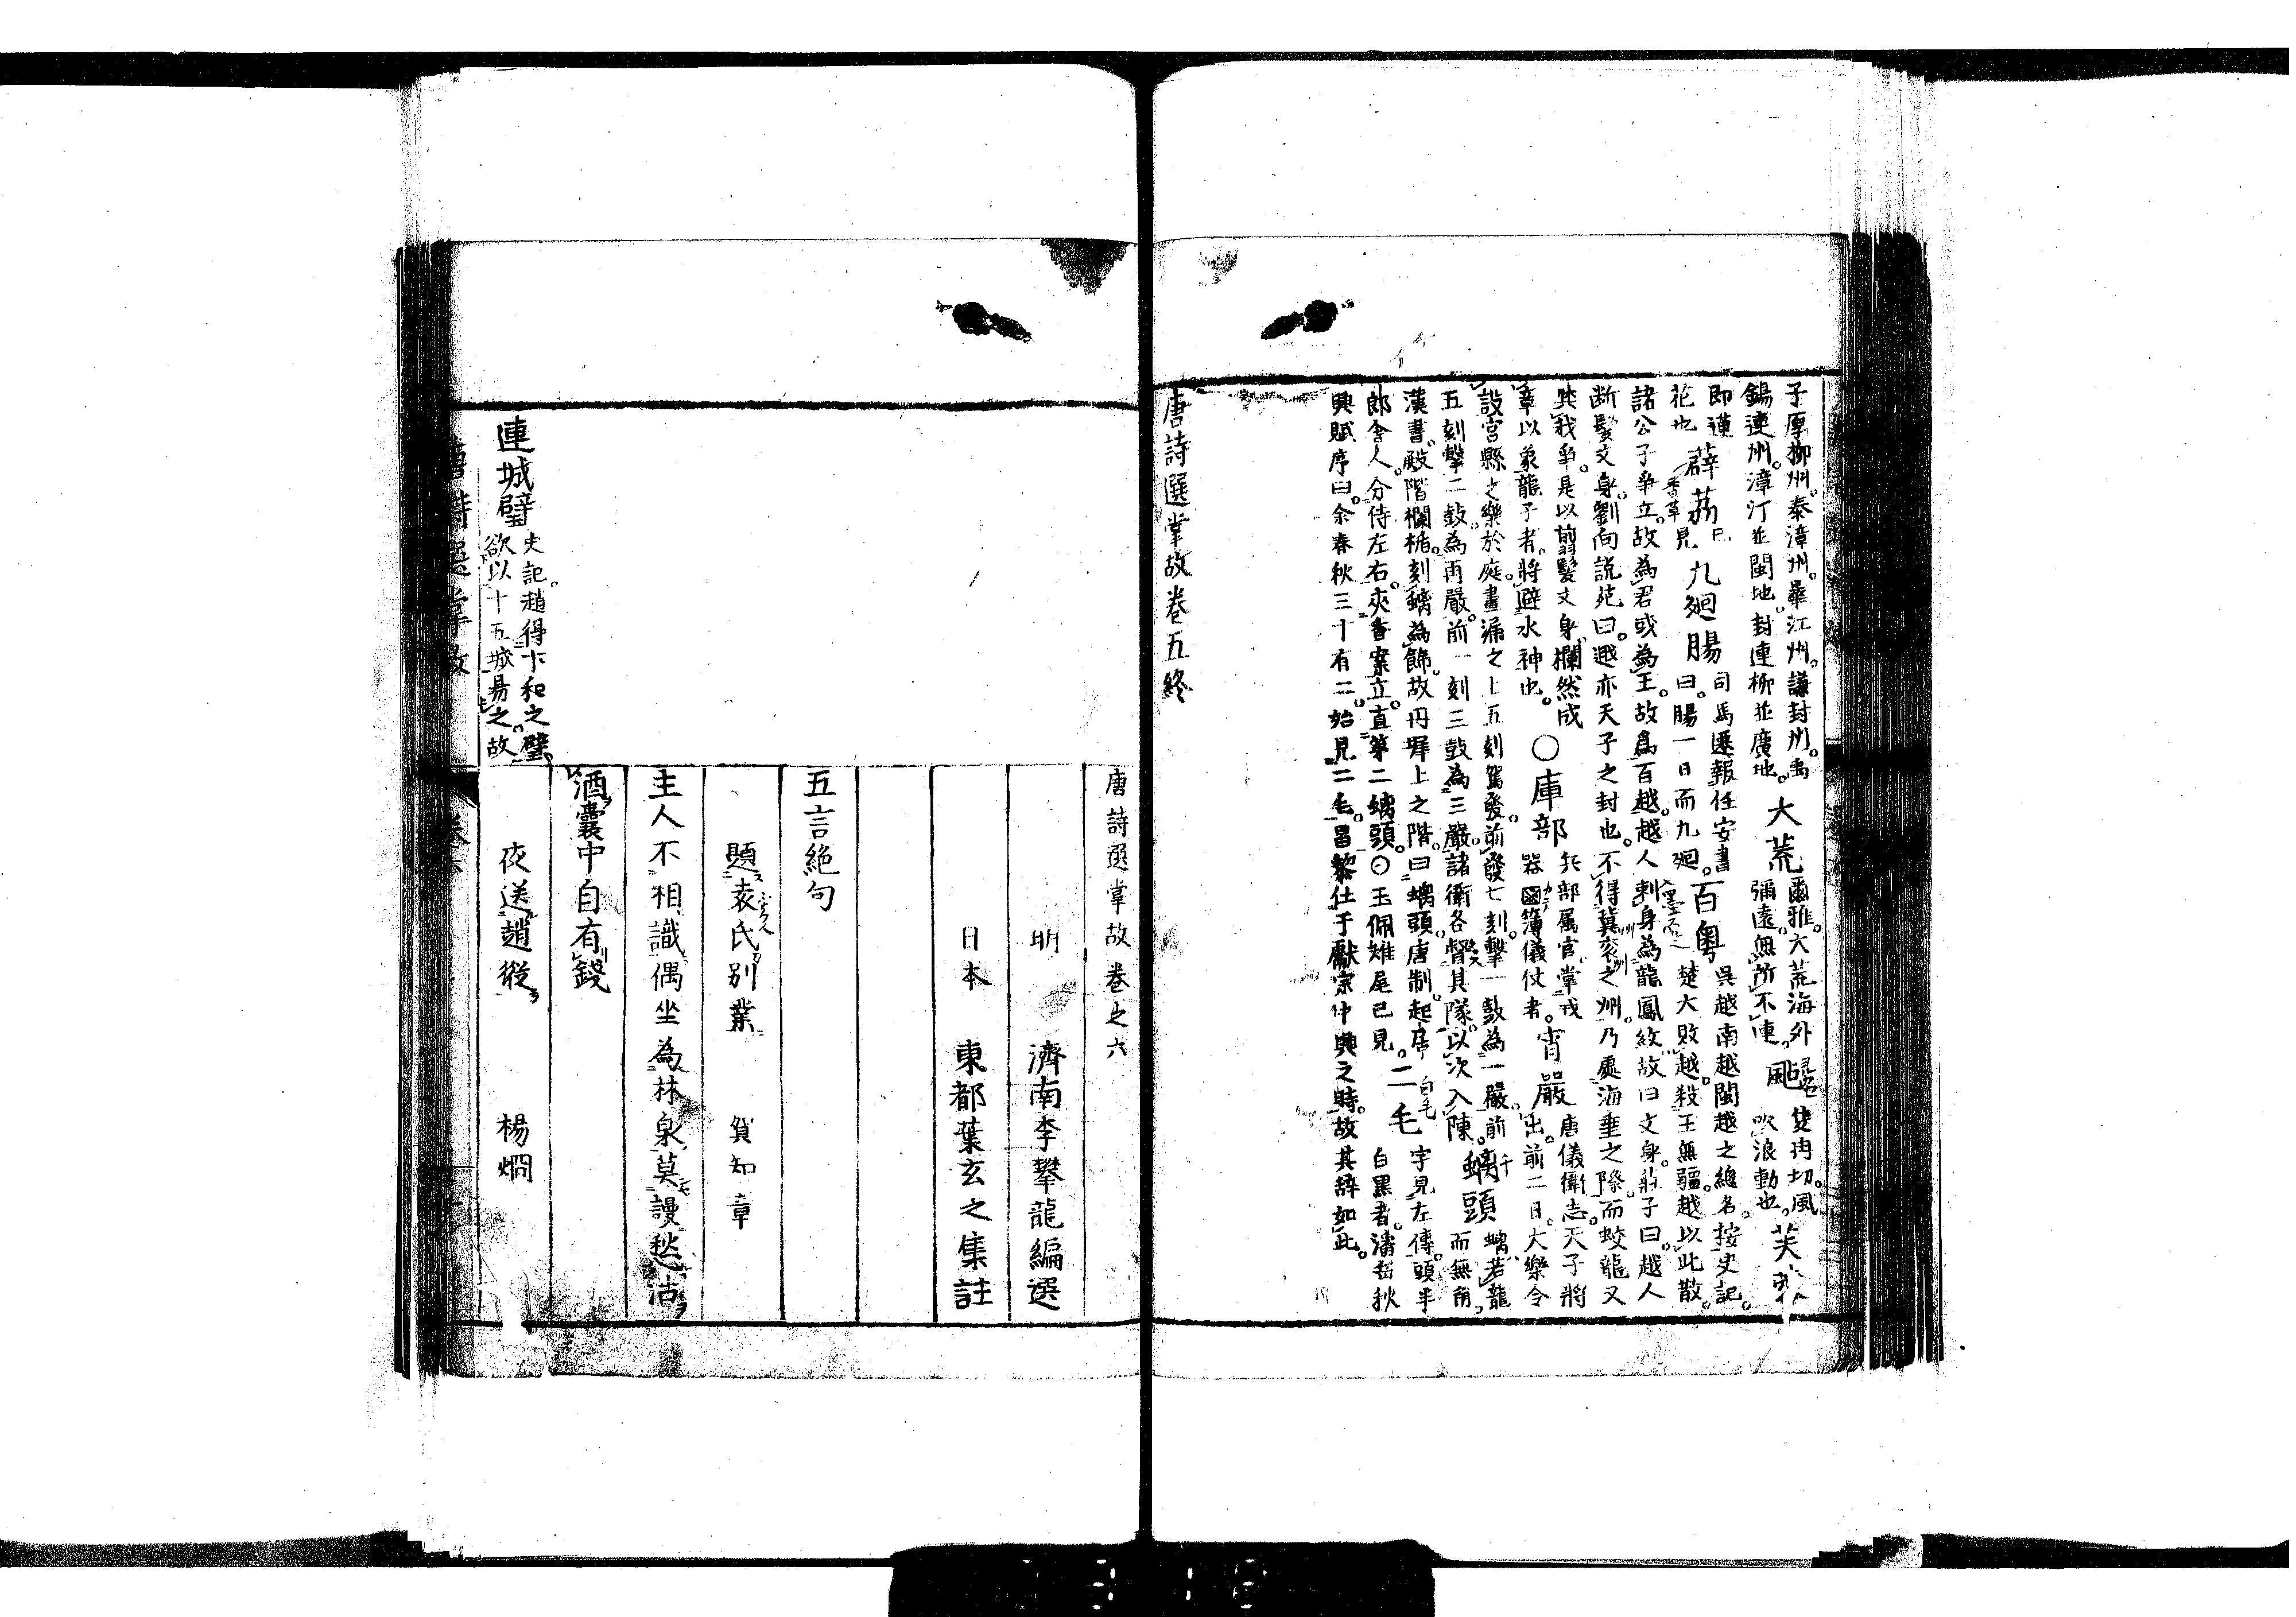 子厚柳州。泰漳州。曄江州。謙封州。禹
錫連州。漳汀並閩地。封連柳並廣地。
大荒
爾雅。大荒海外
彌遠。無所不連。
颭
隻冉切。風
吹浪動也。
芙蓉
即蓮
花也
薜荔
已
見
香草
九廻腸
司馬遷報任安書
曰。腸一日而九廻。
百粤
吳越南越閩越之總名。按史記。
楚大敗越。殺王無疆。越以此散。
諸公子爭立。故為君或為王。故爲百越。越人刺身為龍鳳紋故曰文身。莊子曰。越人
断髮文身。劉向説苑曰。越亦天子之封也。不得冀兗之州。乃處海垂之際。而蛟龍又
與我爭。是以剪髮文身。爛然成
章以象龍子者。將避水神也。
○庫部
兵部属官。掌戎
器鹵簿儀仗者。
宵嚴
唐儀衛志。天子將
出。前二日。大樂令
設宮縣之樂於庭。晝漏之上五刻駕發。前發七刻。擊一鼓為一嚴。前
五刻擊二鼓。為再嚴。前一刻三鼓為三嚴。諸衛各督其隊。以次入陳。
螭頭
螭。若龍
而無角。
漢書。殿階欄楯。刻螭為飾。故丹墀上之階。曰螭頭。唐制。起居
郎舍人。分侍左右。夾香案立。直第二螭頭。○玉佩雉尾已見。
二毛
白毛
字見左傳。頭半
白黒者。潘岳秋
興賦序曰。余春秋三十有二。始見二毛。昌黎仕于獻宗中興之時。故其辞如此。
唐詩選掌故卷五終
唐詩選掌故卷之六
明　濟南李攀龍編選
日本　東都葉玄之集註
五言絶句
題袁氏別業　賀知章
主人不相識偶坐為林泉莫謾愁沽
酒囊中自有錢
夜送趙縱　楊烱
連城璧
史記。趙得卞和之璧。
欲以十五城易之。故
唐詩選掌故　卷六